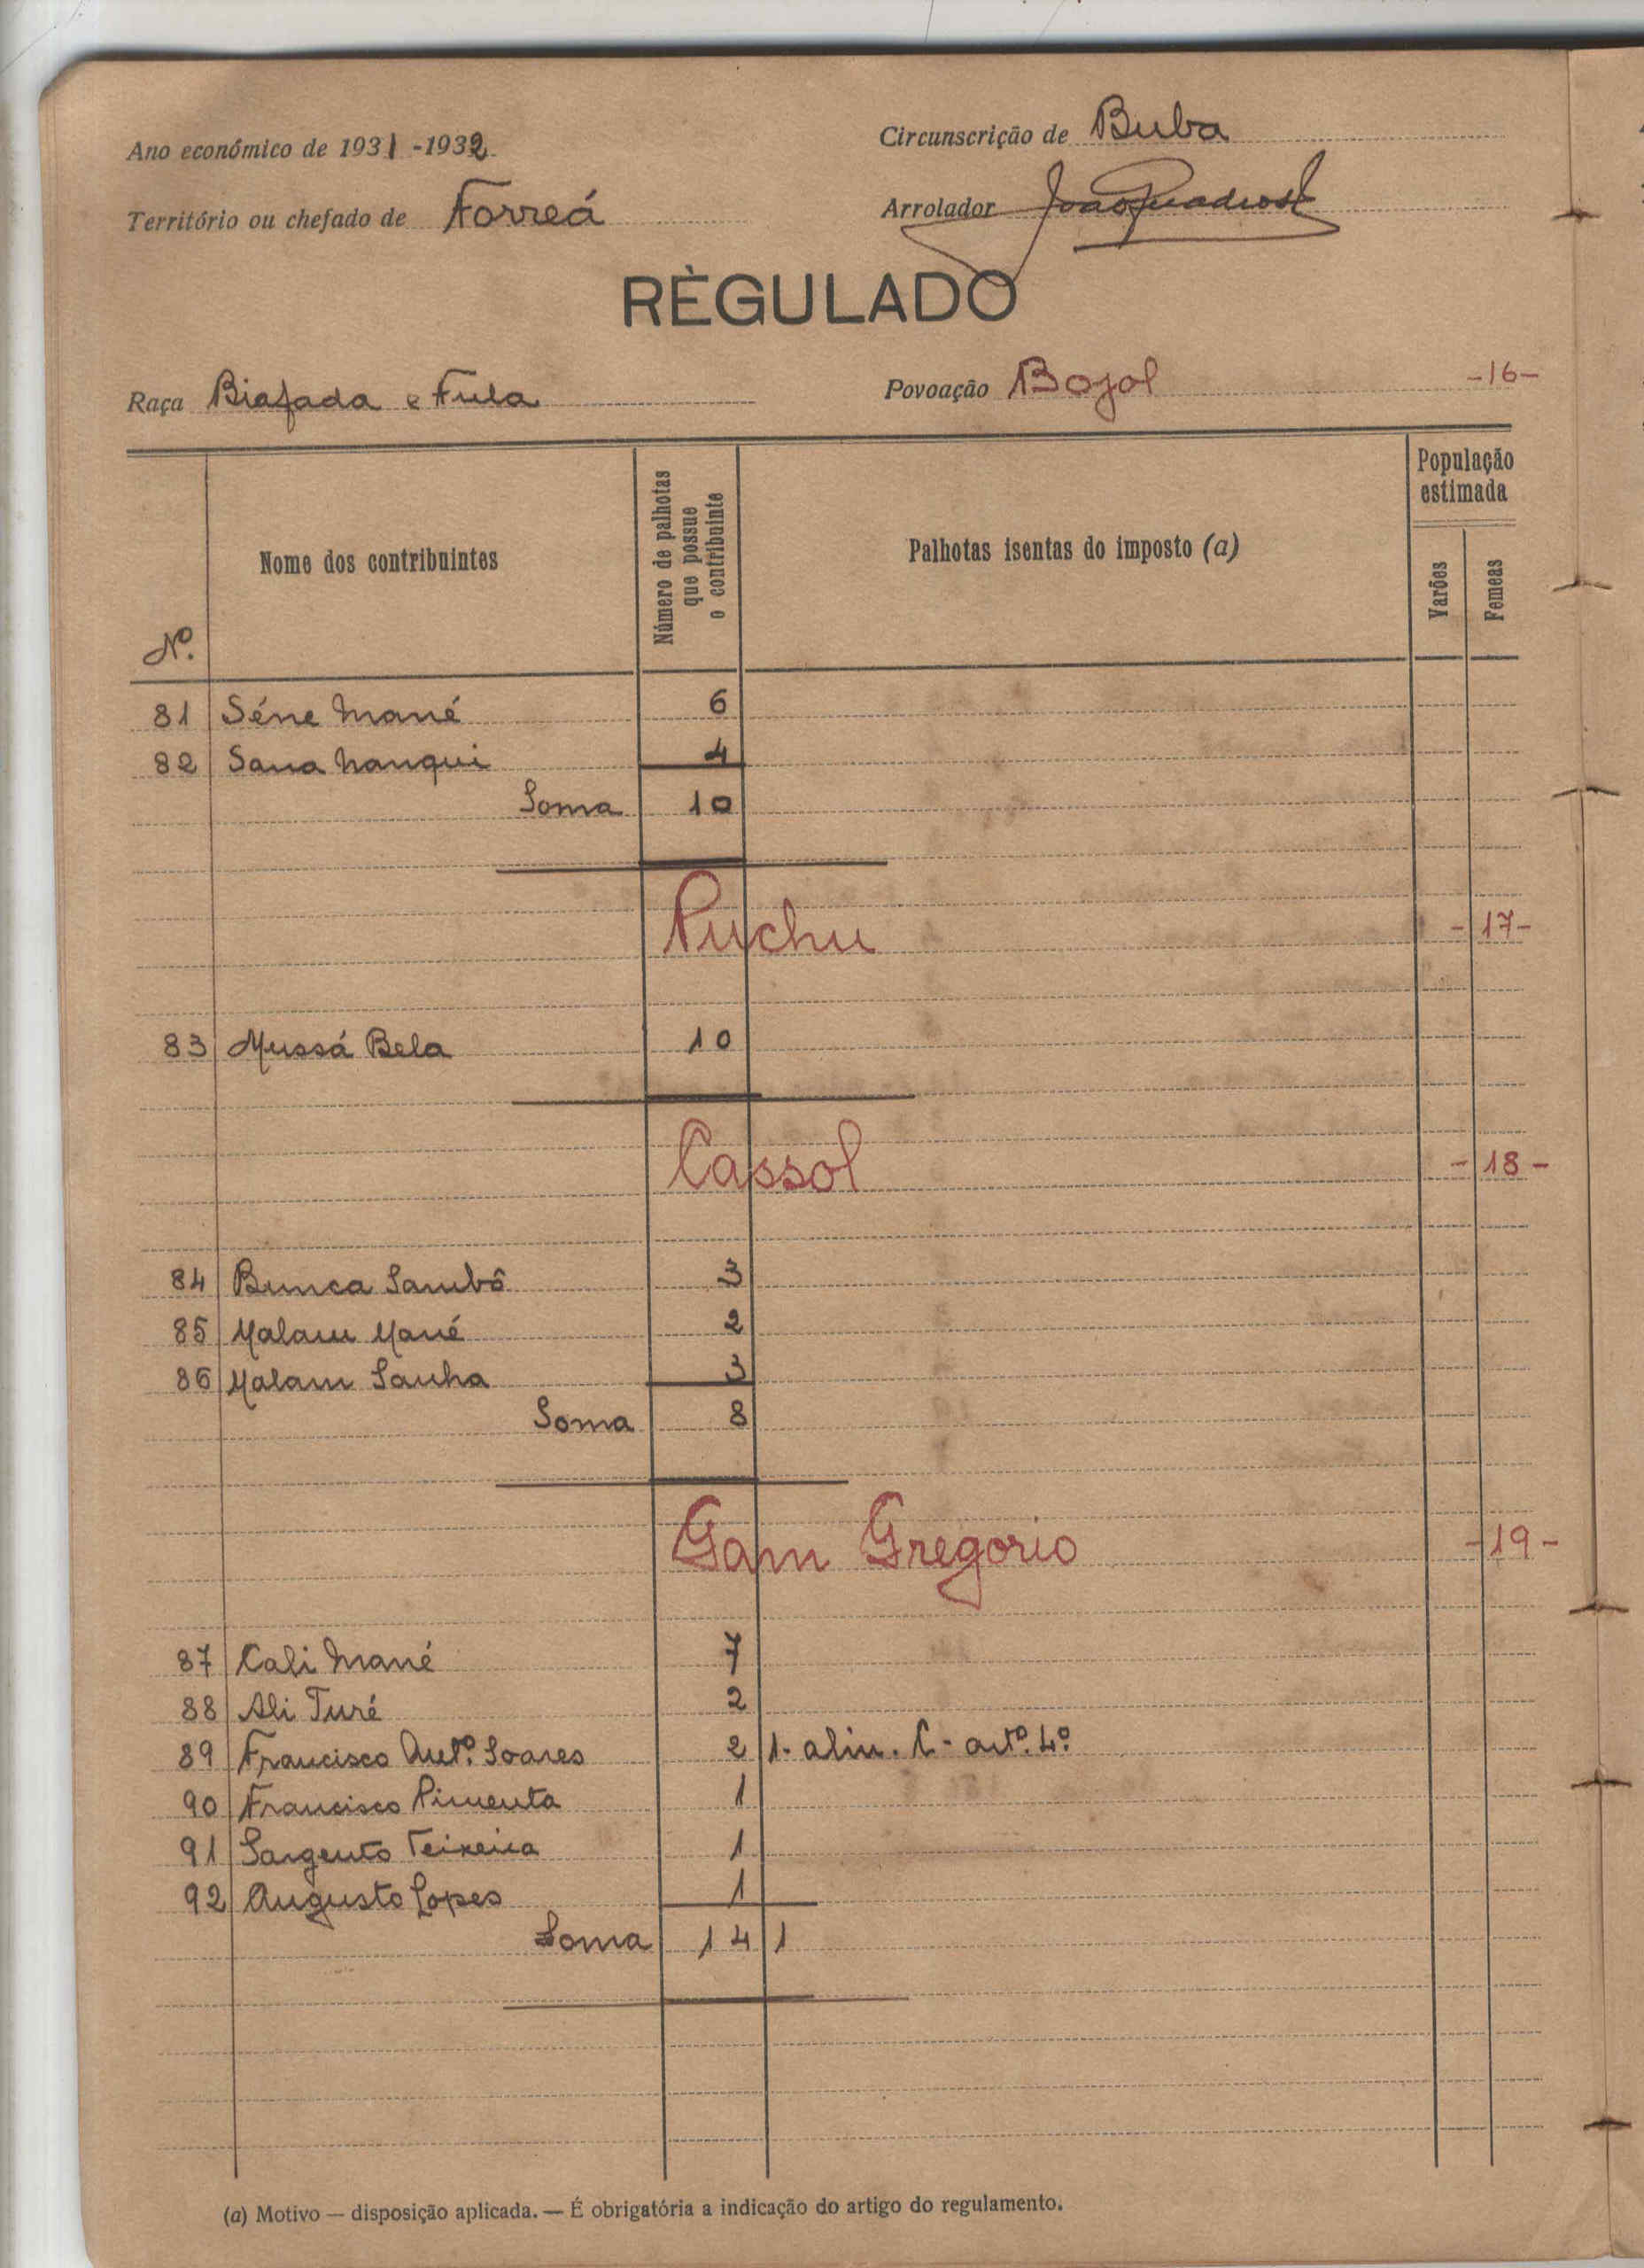 Ano económico de 1931-1932
Circunscrição de Buba
Território ou chefado de Forreá
Arrolador
RÈGULADO
Raça Biafada e Fula
Povoação Bojol -16-
Nº.
Nome dos contribuintes
Número de palhotas
que possue
o contribuinte
Palhotas isentas do imposto (a)
População
estimada
Varões
Femeas
81 Séne Mané 6
82 Sana Nanqui 4
Soma 10
Puchu -17-
83 Mussá Bela 10
Cassol -18-
84 Bunca Sambô 3
85 Malam Mané 2
86 Malam Sanha 3
Soma 8
Gam Gregorio -19-
87 Cali Mané 7
88 Ali Turé 2
89 Francisco Antº. Soares 2 1- alin. C- artº. 4º
90 Francisco Pimenta 1
91 Sargento Teixeira 1
92 Augusto Lopes 1
Soma 14 1
(a) Motivo — disposição aplicada. — É obrigatória a indicação do artigo do regulamento.